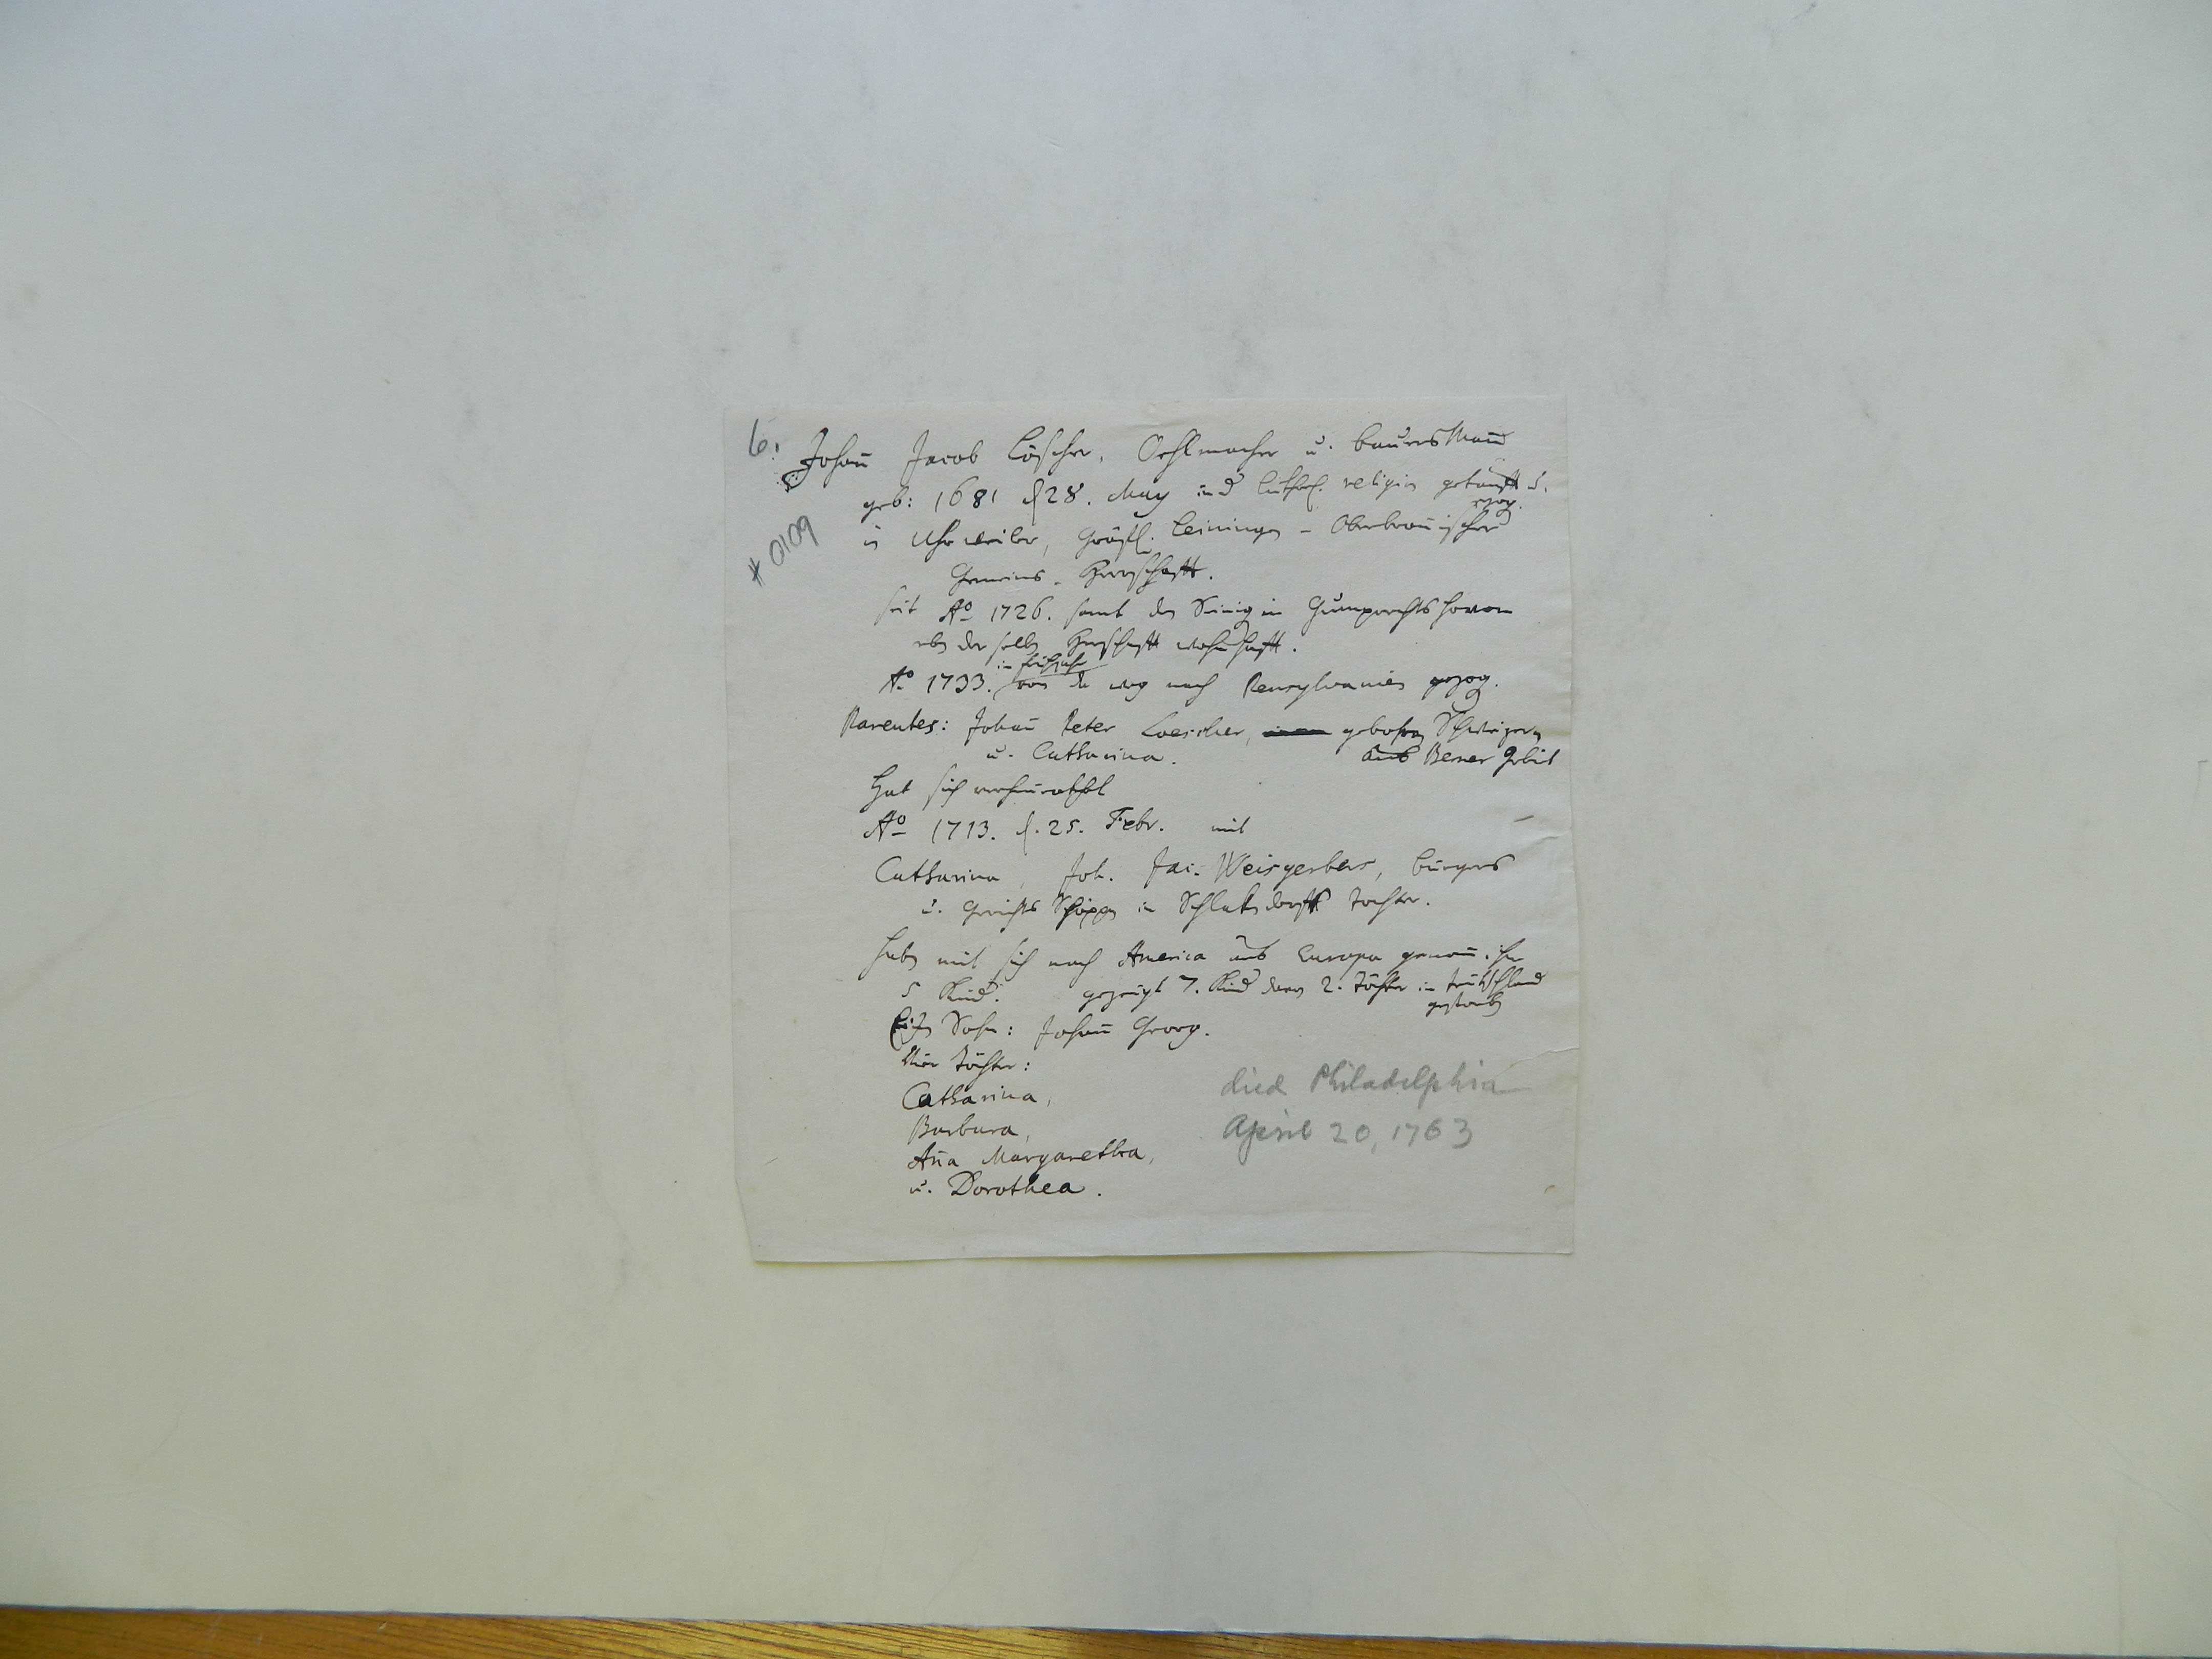 6.
Johañ Jacob Löscher, Oehlmacher u. baursMañ
# 0109
geb: 1681 d 28. May in d luther. religion getaufft u.
erzog.
in Uhrweiler, Gräffl. Leiningen - Oberbroñischer
Gemeins-Herrschafft.
seit Aº 1726. samt den Seinigen Gumprechtshoven
eben der selben Herschafft wohnhafft.
im frühjahr
Aº 1733. von da weg nach Pensylvanien gezog.
Parentes: Johañ Peter Loescher, gebohren Schweizern
u. Catharina. aus Berner Gebiet
Hat sich verheurathet
Aº 1713. d. 25. Febr. mit
Catharina, Joh. Jac. Weisgerbers, burgers
u. Gerichts Schöppen in Schlettdorff Tochter.
haben mit sich nach America aus Europa genoñ. ihre
5 Kind. gezeugt 7. Kind davon 2. Töchter in teutschland
gestorben
Ein Sohn: Johañ Georg.
Vier Töchter:
Catharina,
Barbara,
Aña Margaretha,
u. Dorothea.
died Philadelphia
April 20, 1763